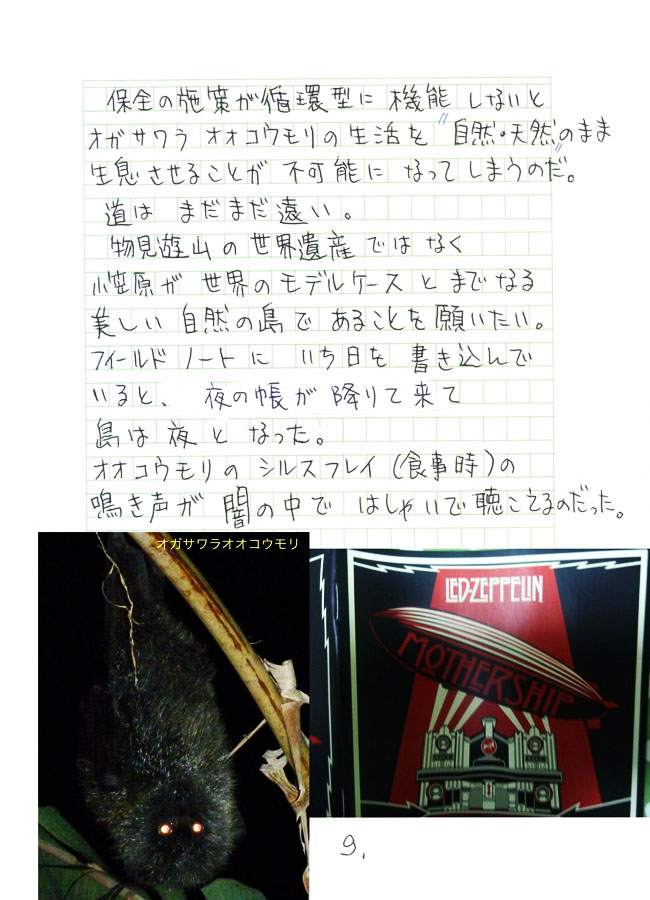 保全の施策が循環型に機能しないと
オガサワラオオコウモリの生活を"自然・天然のまま"
生息させることが不可能になってしまうのだ。
道はまだまだ遠い。
物見遊山の世界遺産ではなく
小笠原が世界のモデルケースとまでなる
美しい自然の島であることを願いたい。
フィールドノートにいち日を書き込んで
いると、夜の帳が降りて来て
島は夜となった。
オオコウモリのシルスフレイ(食事時)の
鳴き声が闇の中ではしゃいで聴こえるのだった。
オガサワラオオコウモリ
LED-ZEPPELIN
MOTHERSHIP
9.